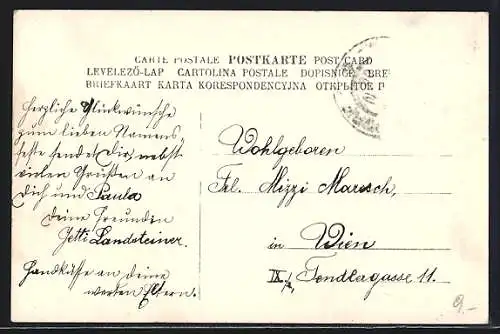 CARTE POSTALE POSTKARTE POST CARD
LEVELEZŐ-LAP CARTOLINA POSTALE DOPISNICE BRE
BRIEFKAART KARTA KORESPONDENCYJNA ОТКРЫТОЕ P
Herzliche Glückwünsche
zum lieben Namens-
feste sendet Dir, nebst
vielen Grüßen an
Dich und Paula
deine Freundin
Jetti Landsteiner.
Handküsse an deine
werten Eltern.
Wohlgeboren
Frl. Mizzi Maresch,
in Wien
IX/ Fendlergasse 11.
9.-